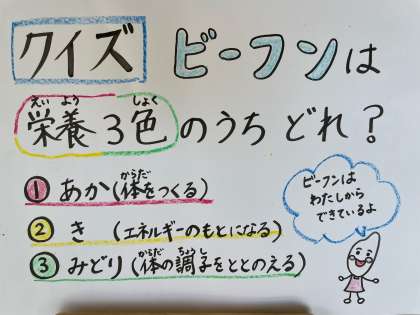 クイズ ビーフンは
えいよう しょく
栄養3色のうち どれ?
からだ
① あか(体をつくる)
② き (エネルギーのもとになる)
からだ ちょうし
③ みどり(体の調子をととのえる)
ビーフンは
わたしから
できているよ